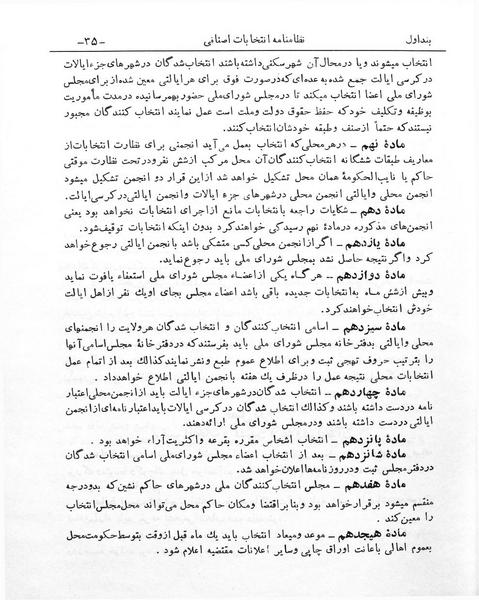 بنداول نظامنامه انتخابات اصنافی -۳۵-
انتخاب میشوند ویا درمحال آن شهرسکنی داشته باشند انتخاب شدگان درشهرهای جزء ایالات
درکرسی ایالت جمع شده به عده‌ای که درصورت فوق برای هر ایالتی معین شده از برای مجلس
شورای ملی اعضا انتخاب میکند تا درمجلس شورای ملی حضور بهمرسانیده درمدت مأموریت
بوظیفه و تکلیف خود که حفظ حقوق دولت وملت است عمل نمایند انتخاب کنندگان مجبور
نیستند که حتماً ازصنف وطبقه خودشان انتخاب کنند.
مادهٔ نهم – درهرمحلی که انتخاب بعمل می‌آید انجمنی برای نظارت انتخابات از
معاریف طبقات ششگانه انتخاب کنندگان آن محل مرکب ازشش نفر ودر تحت نظارت موقتی
حاکم یا نایب الحکومهٔ همان محل تشکیل خواهد شد از این قرار دو انجمن تشکیل میشود
انجمن محلی وایالتی انجمن محلی درشهرهای جزء ایالات وانجمن ایالتی درکرسی ایالت.
مادهٔ دهم – شکایات راجعه بانتخابات مانع ازاجرای انتخابات نخواهد بود یعنی
انجمن‌های مذکوره درمادهٔ نهم رسیدگی خواهند کرد بدون اینکه انتخابات توقیف شود.
مادهٔ یازدهم – اگر از انجمن محلی کسی متشکی باشد بانجمن ایالتی رجوع خواهد
کرد واگر نتیجه حاصل نشد بمجلس شورای ملی باید رجوع نماید.
مادهٔ دوازدهم – هرگاه یکی از اعضاء مجلس شورای ملی استعفاء یافوت نماید
وبیش ازشش ماه به انتخابات جدیده باقی باشد اعضاء مجلس بجای اویك نفر ازاهل ایالت
خودش انتخاب خواهند کرد.
مادهٔ سیزدهم – اسامی انتخاب کنندگان و انتخاب شدگان هر ولایت را انجمنهای
محلی وایالتی بدفترخانه مجلس شورای ملی باید بفرستند که دردفترخانهٔ مجلس اسامی آنها
را بترتیب حروف تهجی ثبت وبرای اطلاع عموم طبع ونشر نمایند کذالك بعد از اتمام عمل
انتخابات محلی نتیجه عمل را درظرف یك هفته بانجمن ایالتی اطلاع خواهد داد.
مادهٔ چهاردهم – انتخاب شدگان درشهرهای جزء ایالت باید ازانجمن محلی اعتبار
نامه دردست داشته باشند وکذالك انتخاب شدگان درکرسی ایالات باید اعتبار نامه‌ای ازانجمن
ایالتی دردست داشته باشند ودرمجلس شورای ملی ارائه دهند.
مادهٔ پانزدهم – انتخاب اشخاص مقرره بقرعه واکثریت آراء خواهد بود.
مادهٔ شانزدهم – بعد از انتخاب اعضاء مجلس شورای ملی اسامی انتخاب شدگان
دردفتر مجلس ثبت ودرروزنامه‌ها اعلان خواهد شد.
مادهٔ هفدهم – مجلس انتخاب کنندگان ملی درشهرهای حاکم نشین که بدو درجه
منقسم میشود برقرارخواهد بود وبنا براقتضا ومکان حاکم محل می‌تواند محل مجلس انتخاب
را معین کند.
مادهٔ هیجدهم – موعد ومیعاد انتخاب باید یك ماه قبل ازوقت بتوسط حکومت محل
بعموم اهالی باعانت اوراق چاپی وسایر اعلانات مقتضیه اعلام شود.